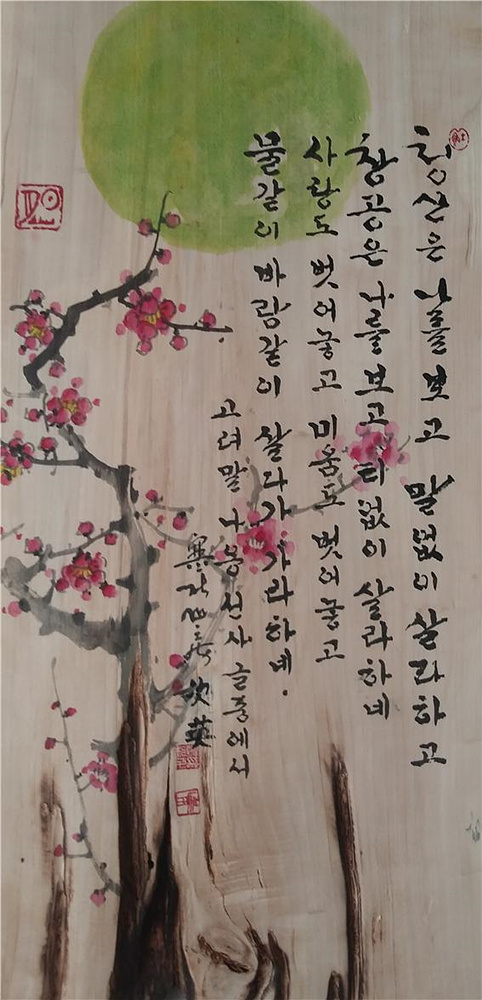 청산은 나를 보고 말없이 살라하고
창공은 나를 보고 티없이 살라하네
사랑도 벗어놓고 미움도 벗어놓고
물같이 바람같이 살다가 가라하네.
고려말 나옹선사 글중에서